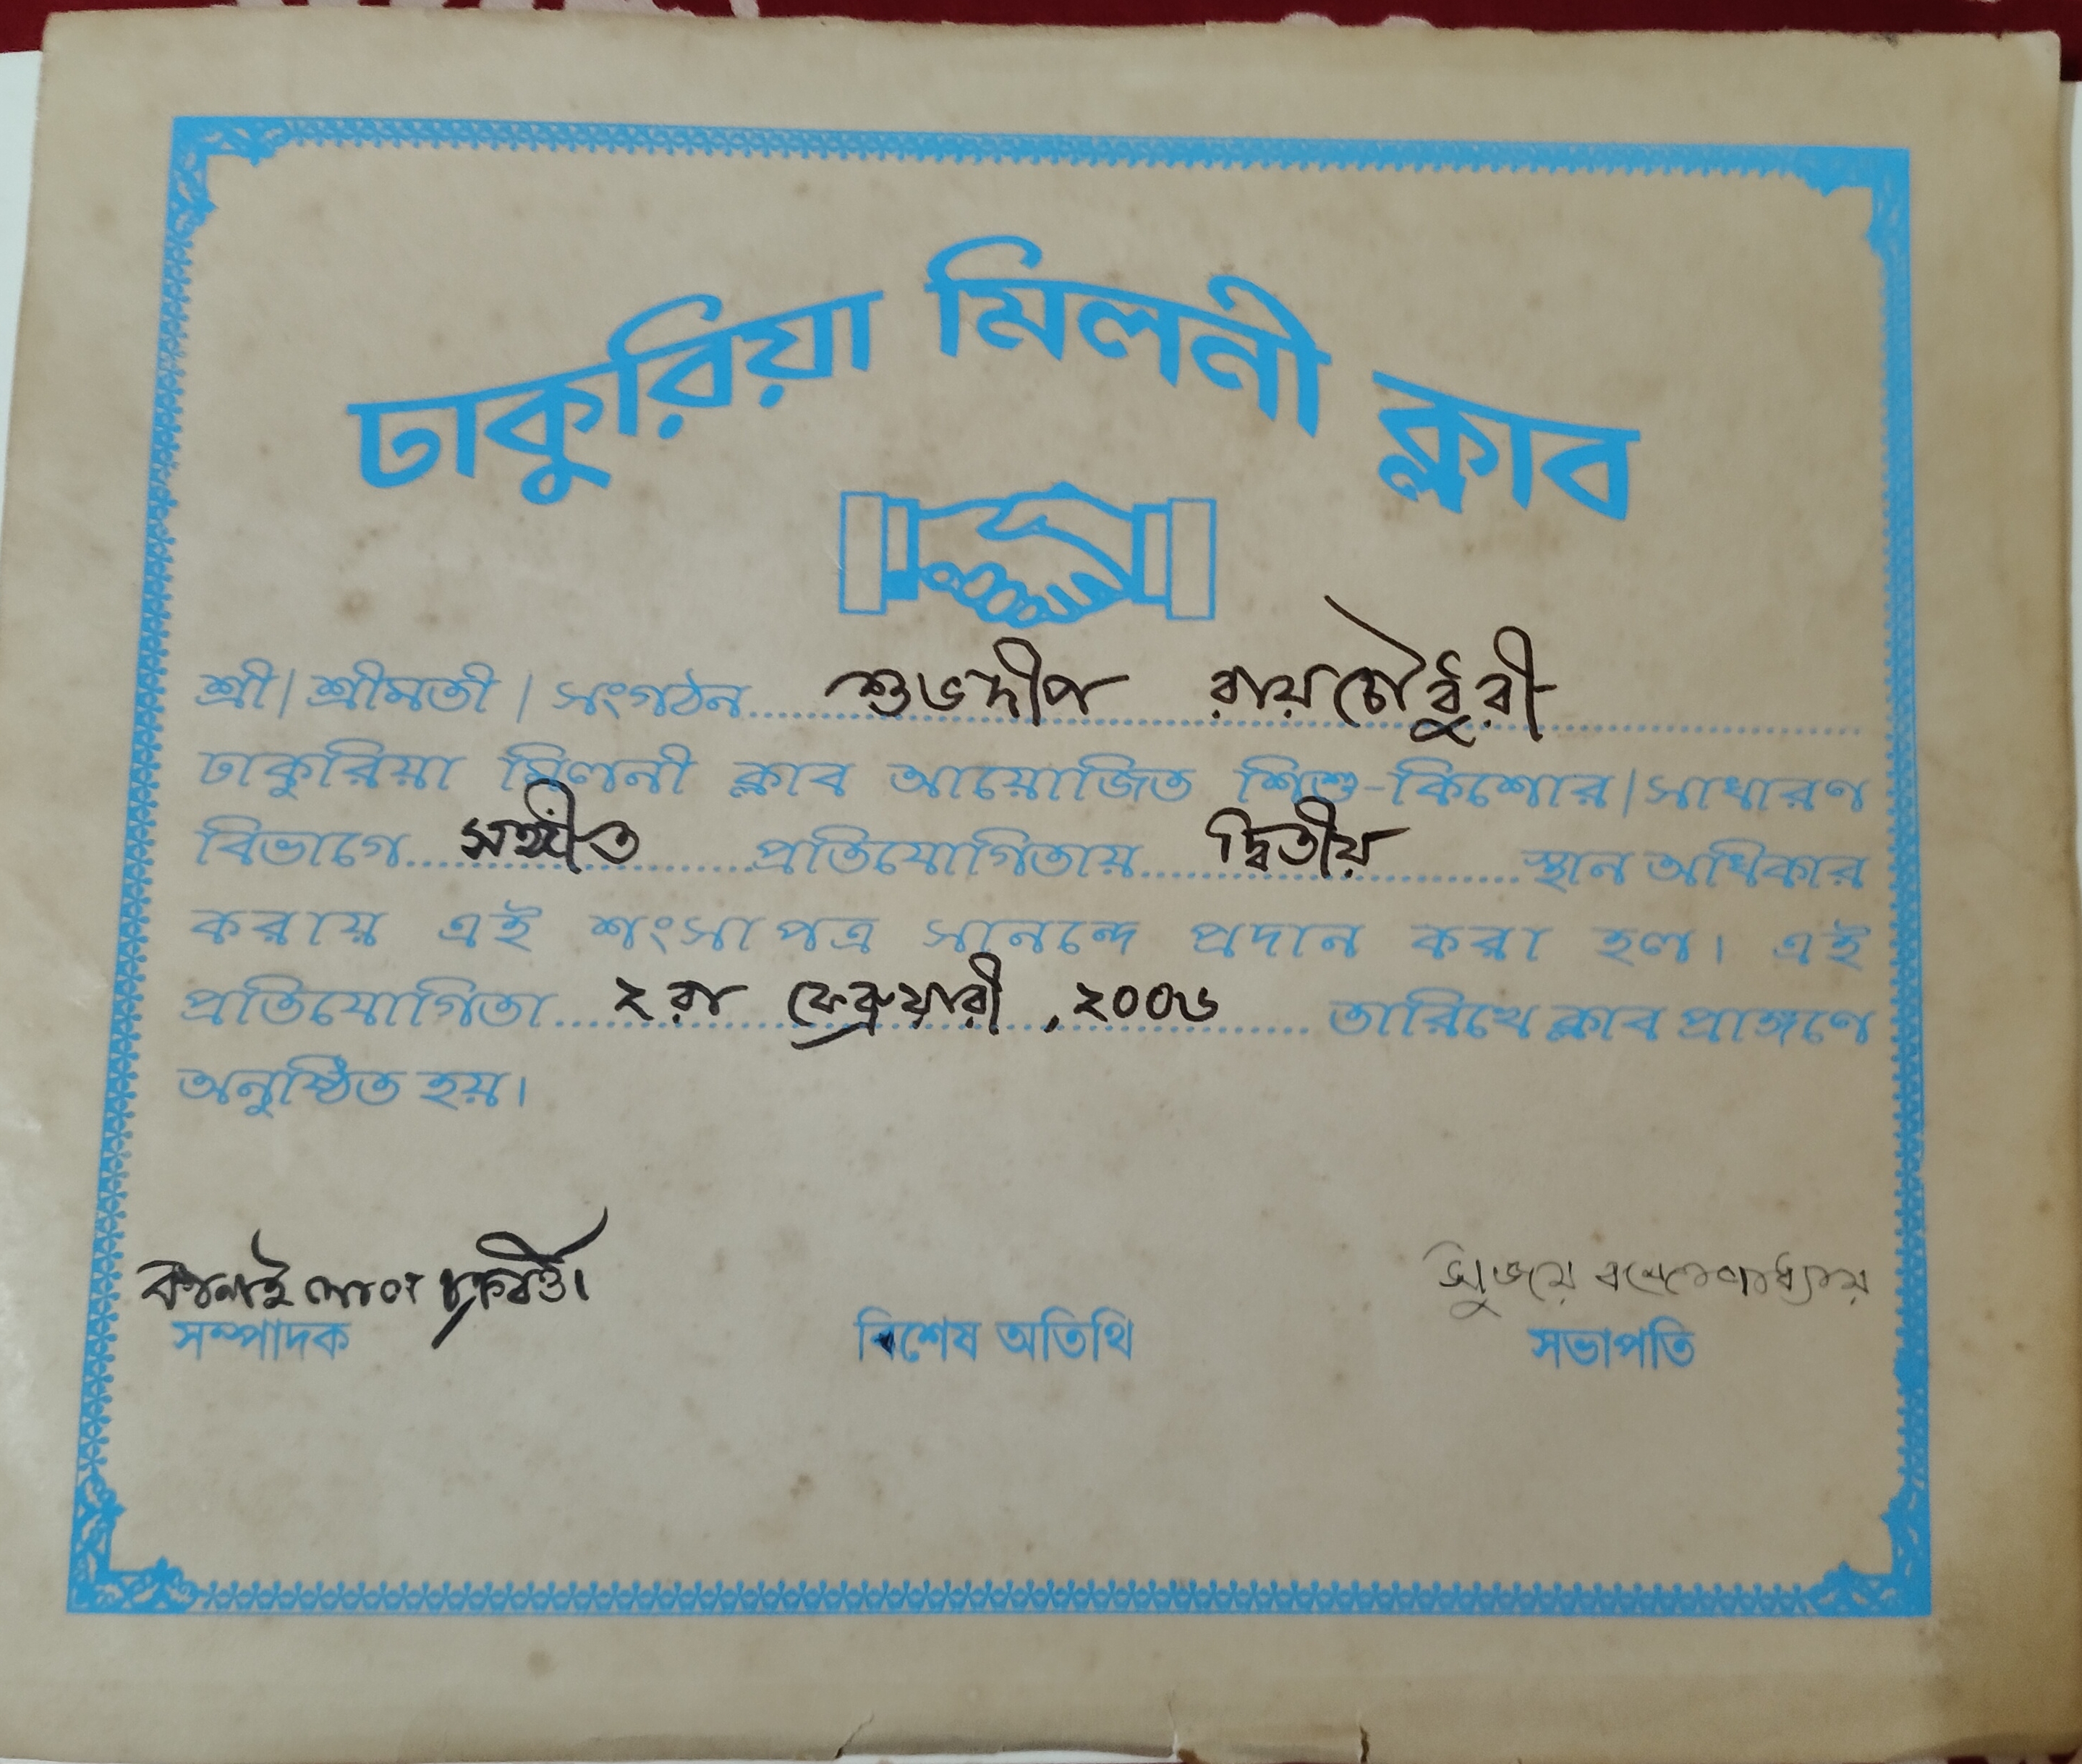 ঢাকুরিয়া মিলনী ক্লাব
শ্রী/শ্রীমতী/সংগঠন.......... শুভদীপ রায়চৌধুরী ..........
ঢাকুরিয়া মিলনী ক্লাব আয়োজিত শিশু-কিশোর/সাধারণ
বিভাগে.......... সঙ্গীত ..........প্রতিযোগিতায়.......... দ্বিতীয় ..........স্থান অধিকার
করায় এই শংসাপত্র সানন্দে প্রদান করা হল। এই
প্রতিযোগিতা.......... ২রা ফেব্রুয়ারী, ২০০৬ .......... তারিখে ক্লাব প্রাঙ্গণে
অনুষ্ঠিত হয়।
কানাই লাল চক্রবর্ত্তী সুজয় বন্দ্যোপাধ্যায়
সম্পাদক বিশেষ অতিথি সভাপতি